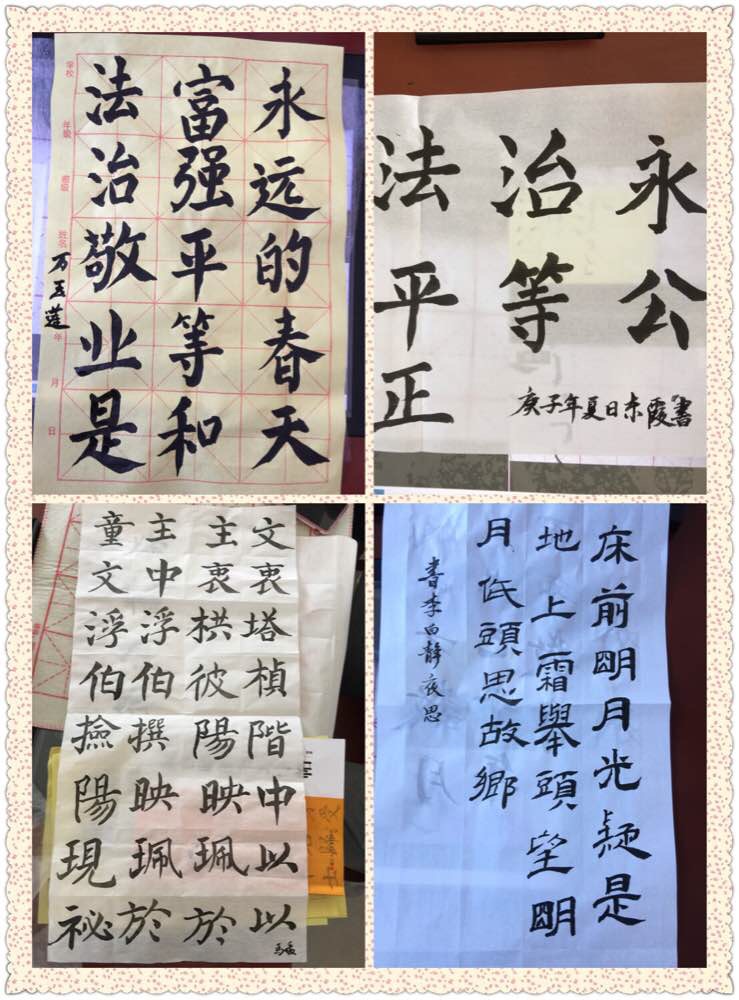 永远的春天
富强平等和
法治敬业是
学校 年级 班级 姓名 年 月 日
万玉莲
永公
治等
法平正
庚子年夏日东霞書
文衷塔楨階中以以
主衷栱彼陽映珮於
主中浮伯撰映珮於
童文浮伯撿陽現祕
床前明月光疑是
地上霜舉頭望明
月低頭思故鄉
書李白靜夜思